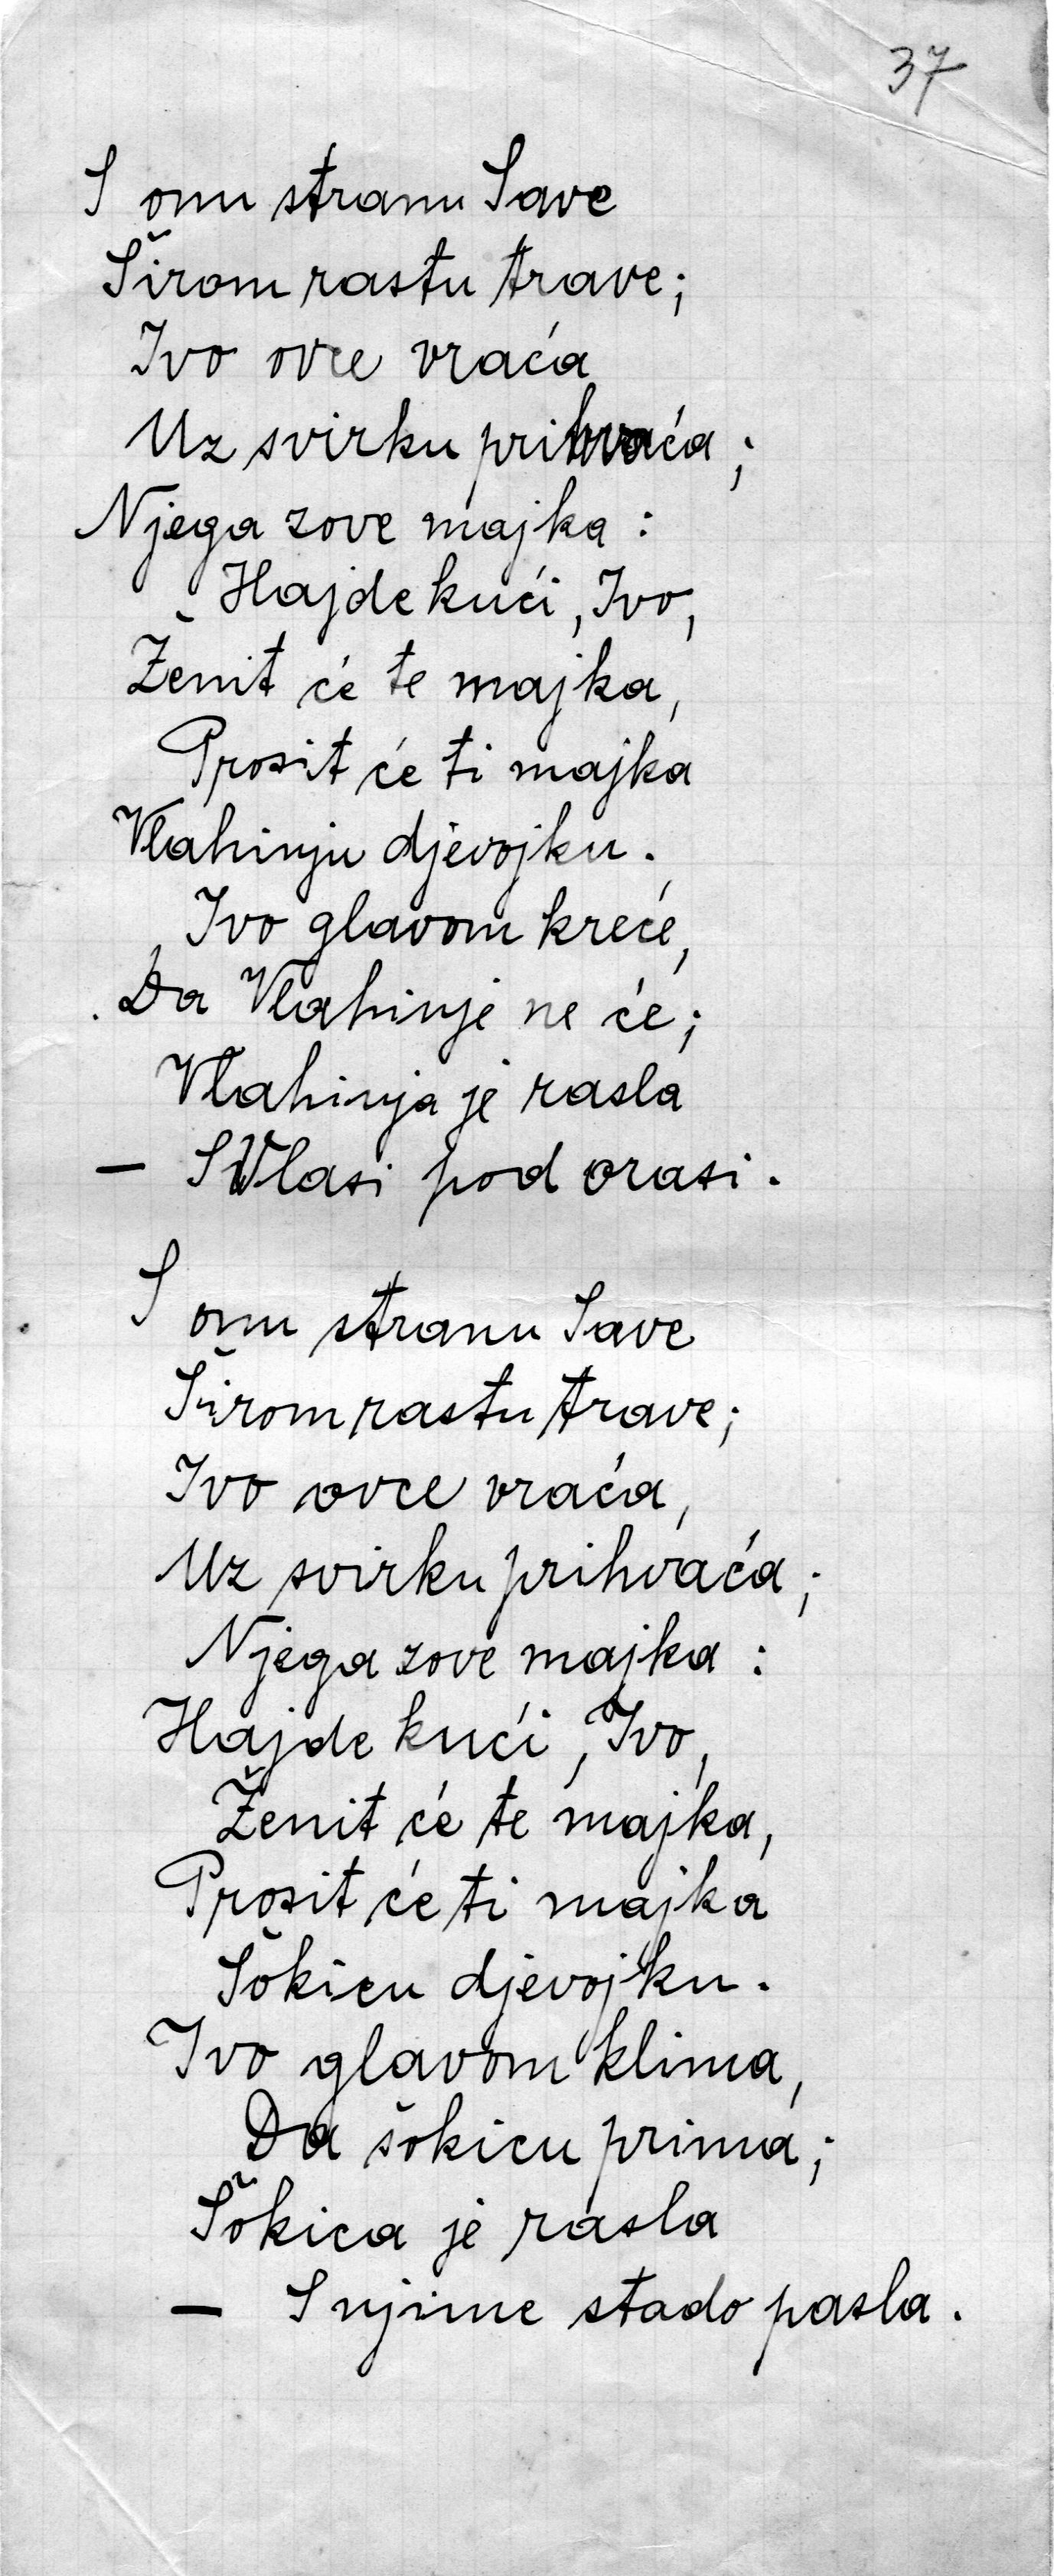 37
S onu stranu Save
Širom rastu trave;
Ivo ovce vraća
Uz svirku prihvaća;
Njega zove majka:
Hajde kući, Ivo,
Ženit će te majka,
Prosit će ti majka
Vlahinju djevojku.
Ivo glavom kreće,
Da Vlahinje ne će;
Vlahinja je rasla
— S Vlasi pod orasi.
S onu stranu Save
Širom rastu trave;
Ivo ovce vraća,
Uz svirku prihvaća;
Njega zove majka:
Hajde kući, Ivo,
Ženit će te majka,
Prosit će ti majka
Šokicu djevojku.
Ivo glavom klima,
Da šokicu prima;
Šokica je rasla
— S njime stado pasla.